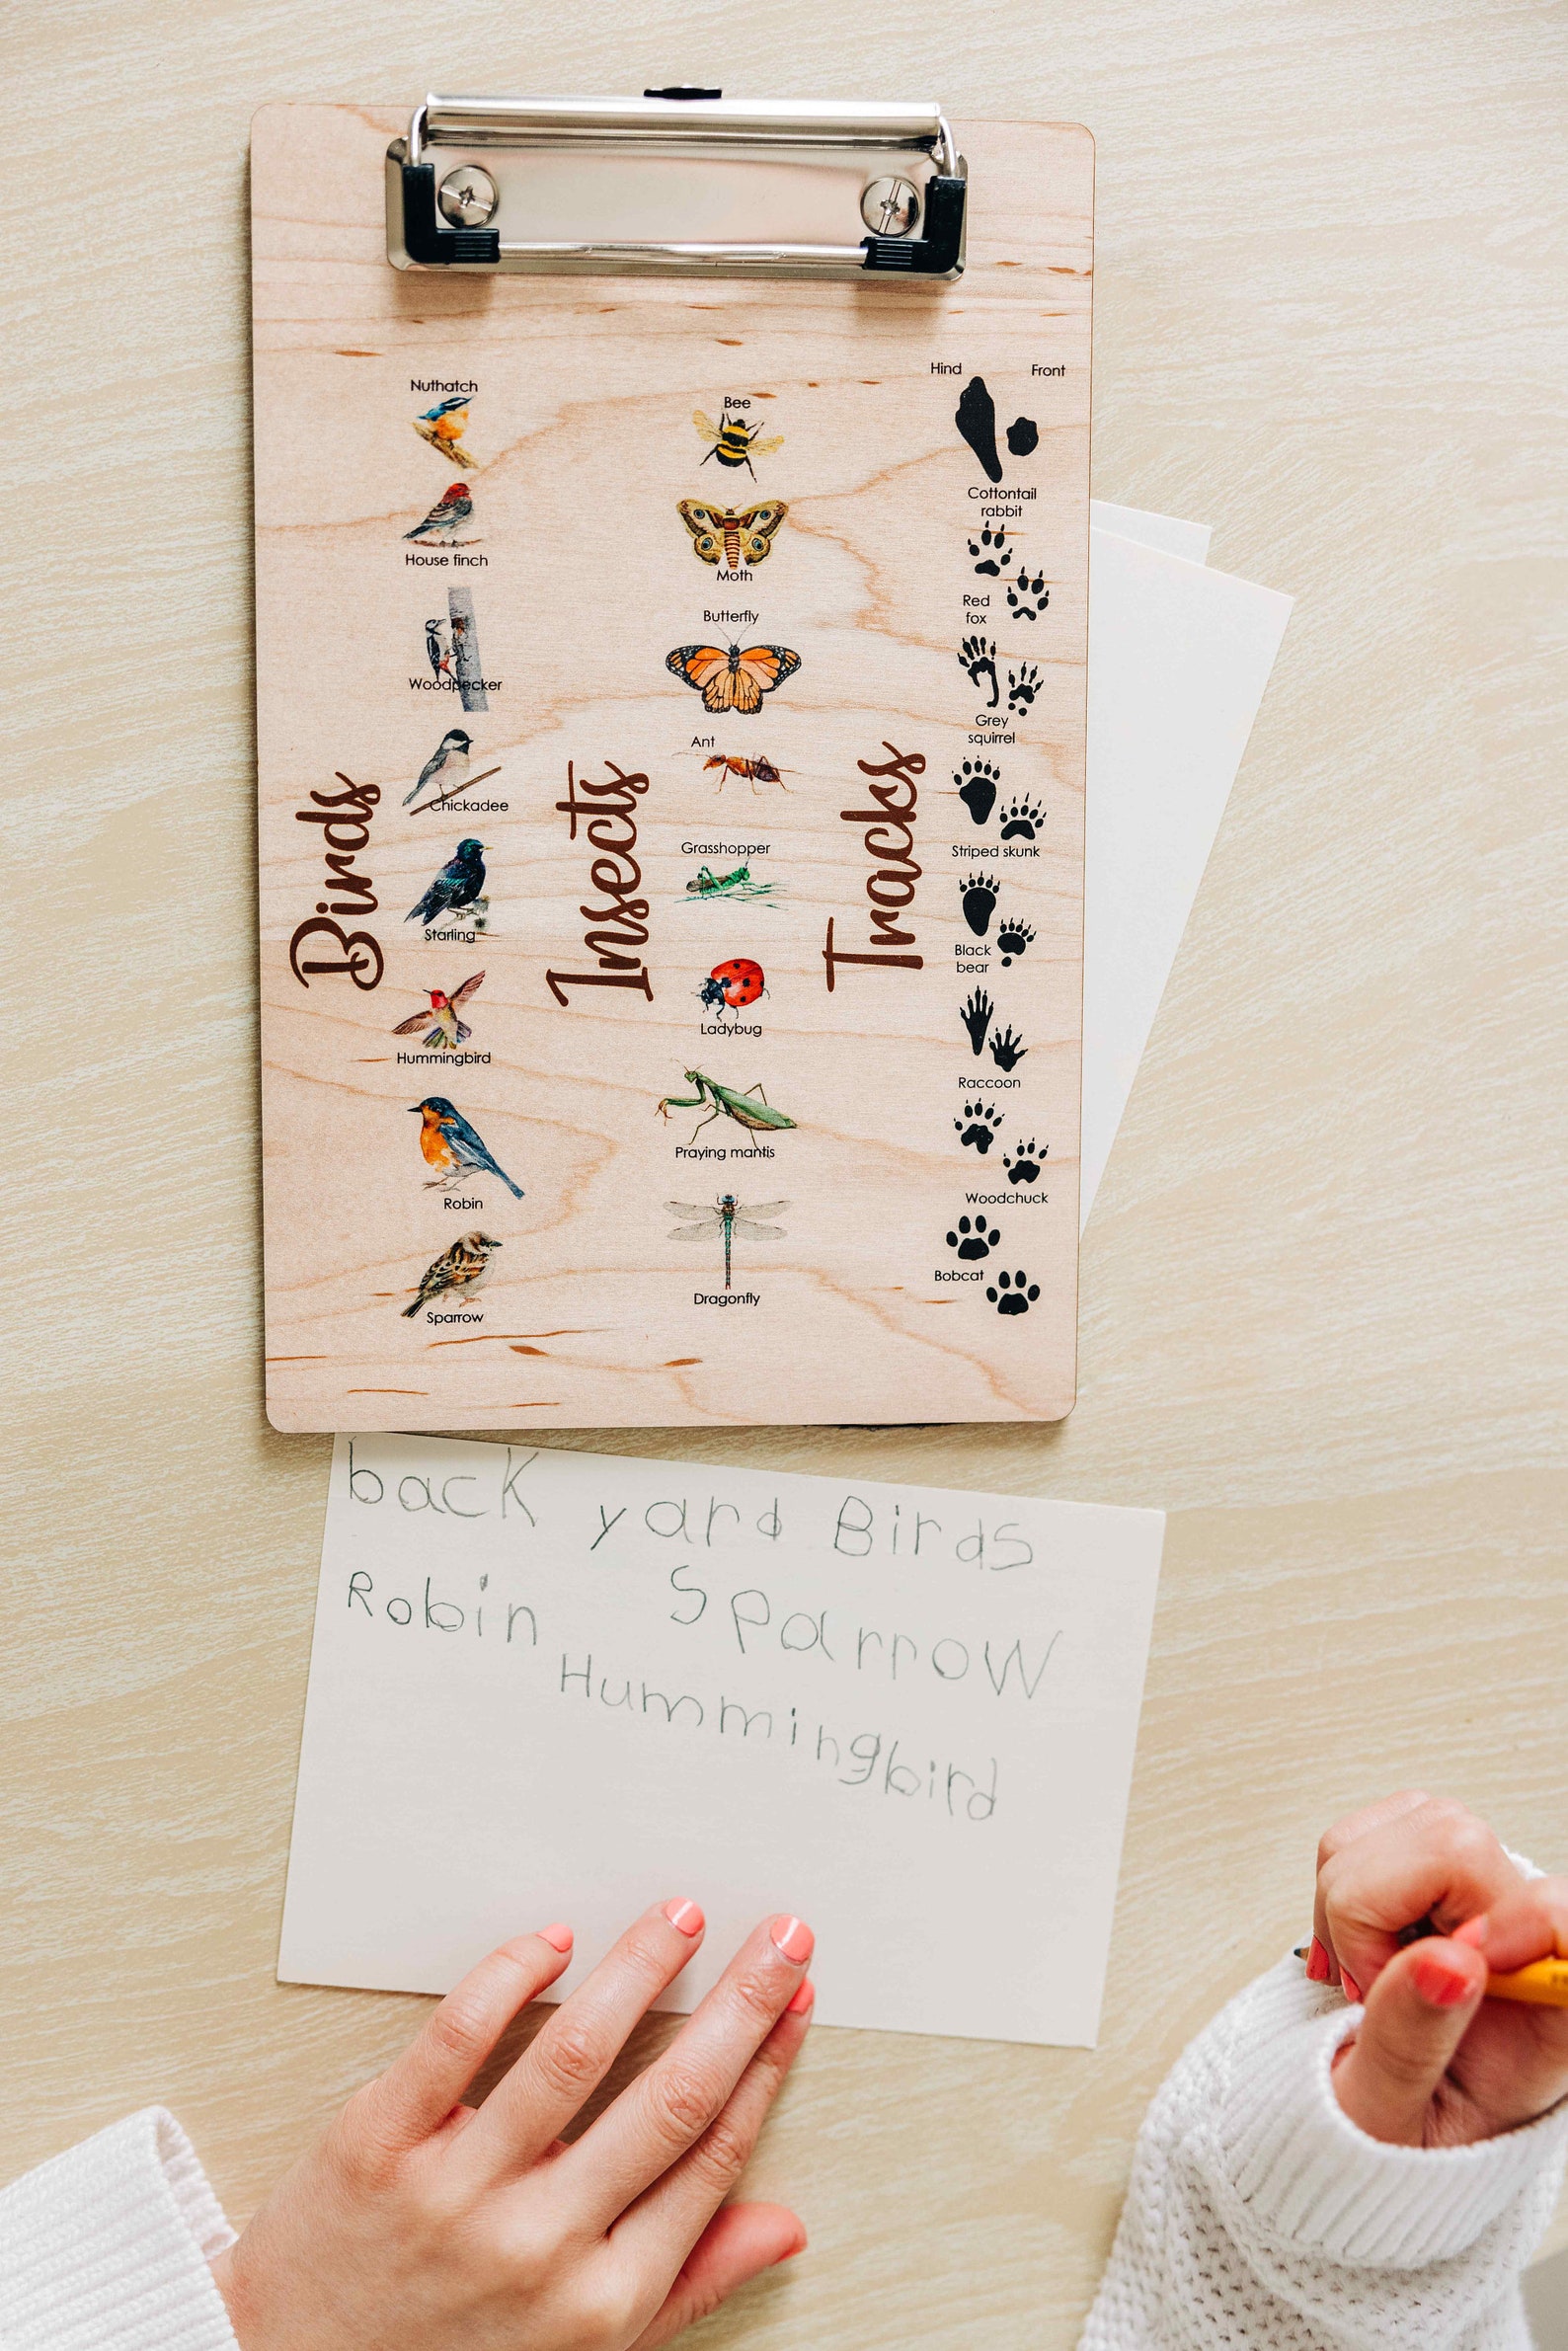 Birds
Nuthatch
House finch
Woodpecker
Chickadee
Starling
Hummingbird
Robin
Sparrow
Insects
Bee
Moth
Butterfly
Ant
Grasshopper
Ladybug
Praying mantis
Dragonfly
Tracks
Hind Front
Cottontail
rabbit
Red
fox
Grey
squirrel
Striped skunk
Black
bear
Raccoon
Woodchuck
Bobcat
back yard Birds
Robin Sparrow
Hummingbird